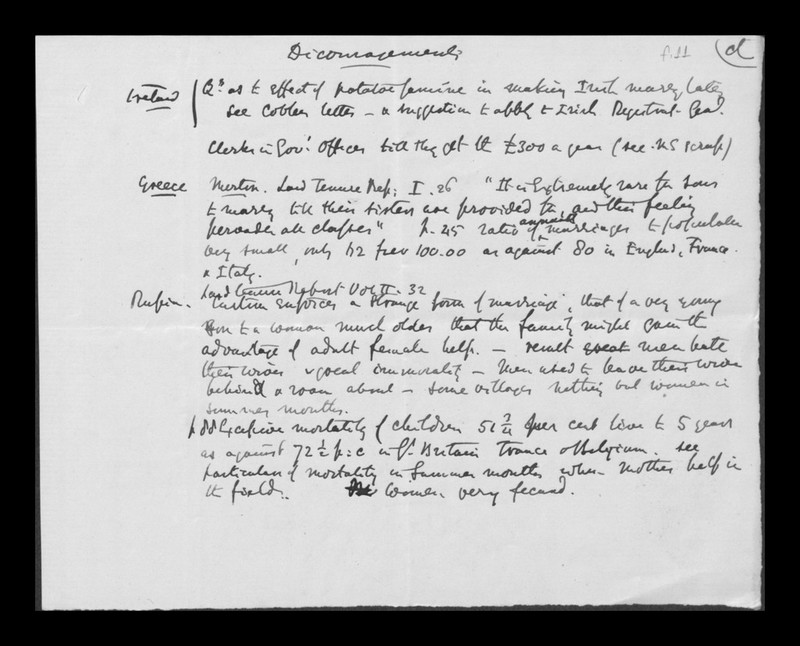 Dicouragements f.11 d
Ireland Qs as to effect of potatoe famine in making Irish marry later
see Cobden letter – a suggestion to apply to Irish Registrar Genl.
Clerks in Govt. Offices till they get the £300 a year (see scrap)
Greece Merlin. Land Tenure Rep: I. 26 "It is Extremely rare for sons
to marry till their sisters are provided for, and this feeling
pervades all classes" p. 25 ratio of annual marriages to population
very small, only 62 per 100.00 as against 80 in England, France
& Italy.
Land tenure Report Vol II. 32
Russia. Custom enforces a strange form of marriage, that of a very young
son to a woman much older that the family might gain the
advantage of adult female help. – result men hate
their wives & great immorality – Men used to leave their wives
behind & roam about – some villages nothing but women in
summer months.
Excessive mortality of children 51 per cent live to 5 years
as against 72 ½ p:c in Gt Britain France & Belgium. see
particulars of mortality in Summer months when mothers help in
the fields. Women very fecund.